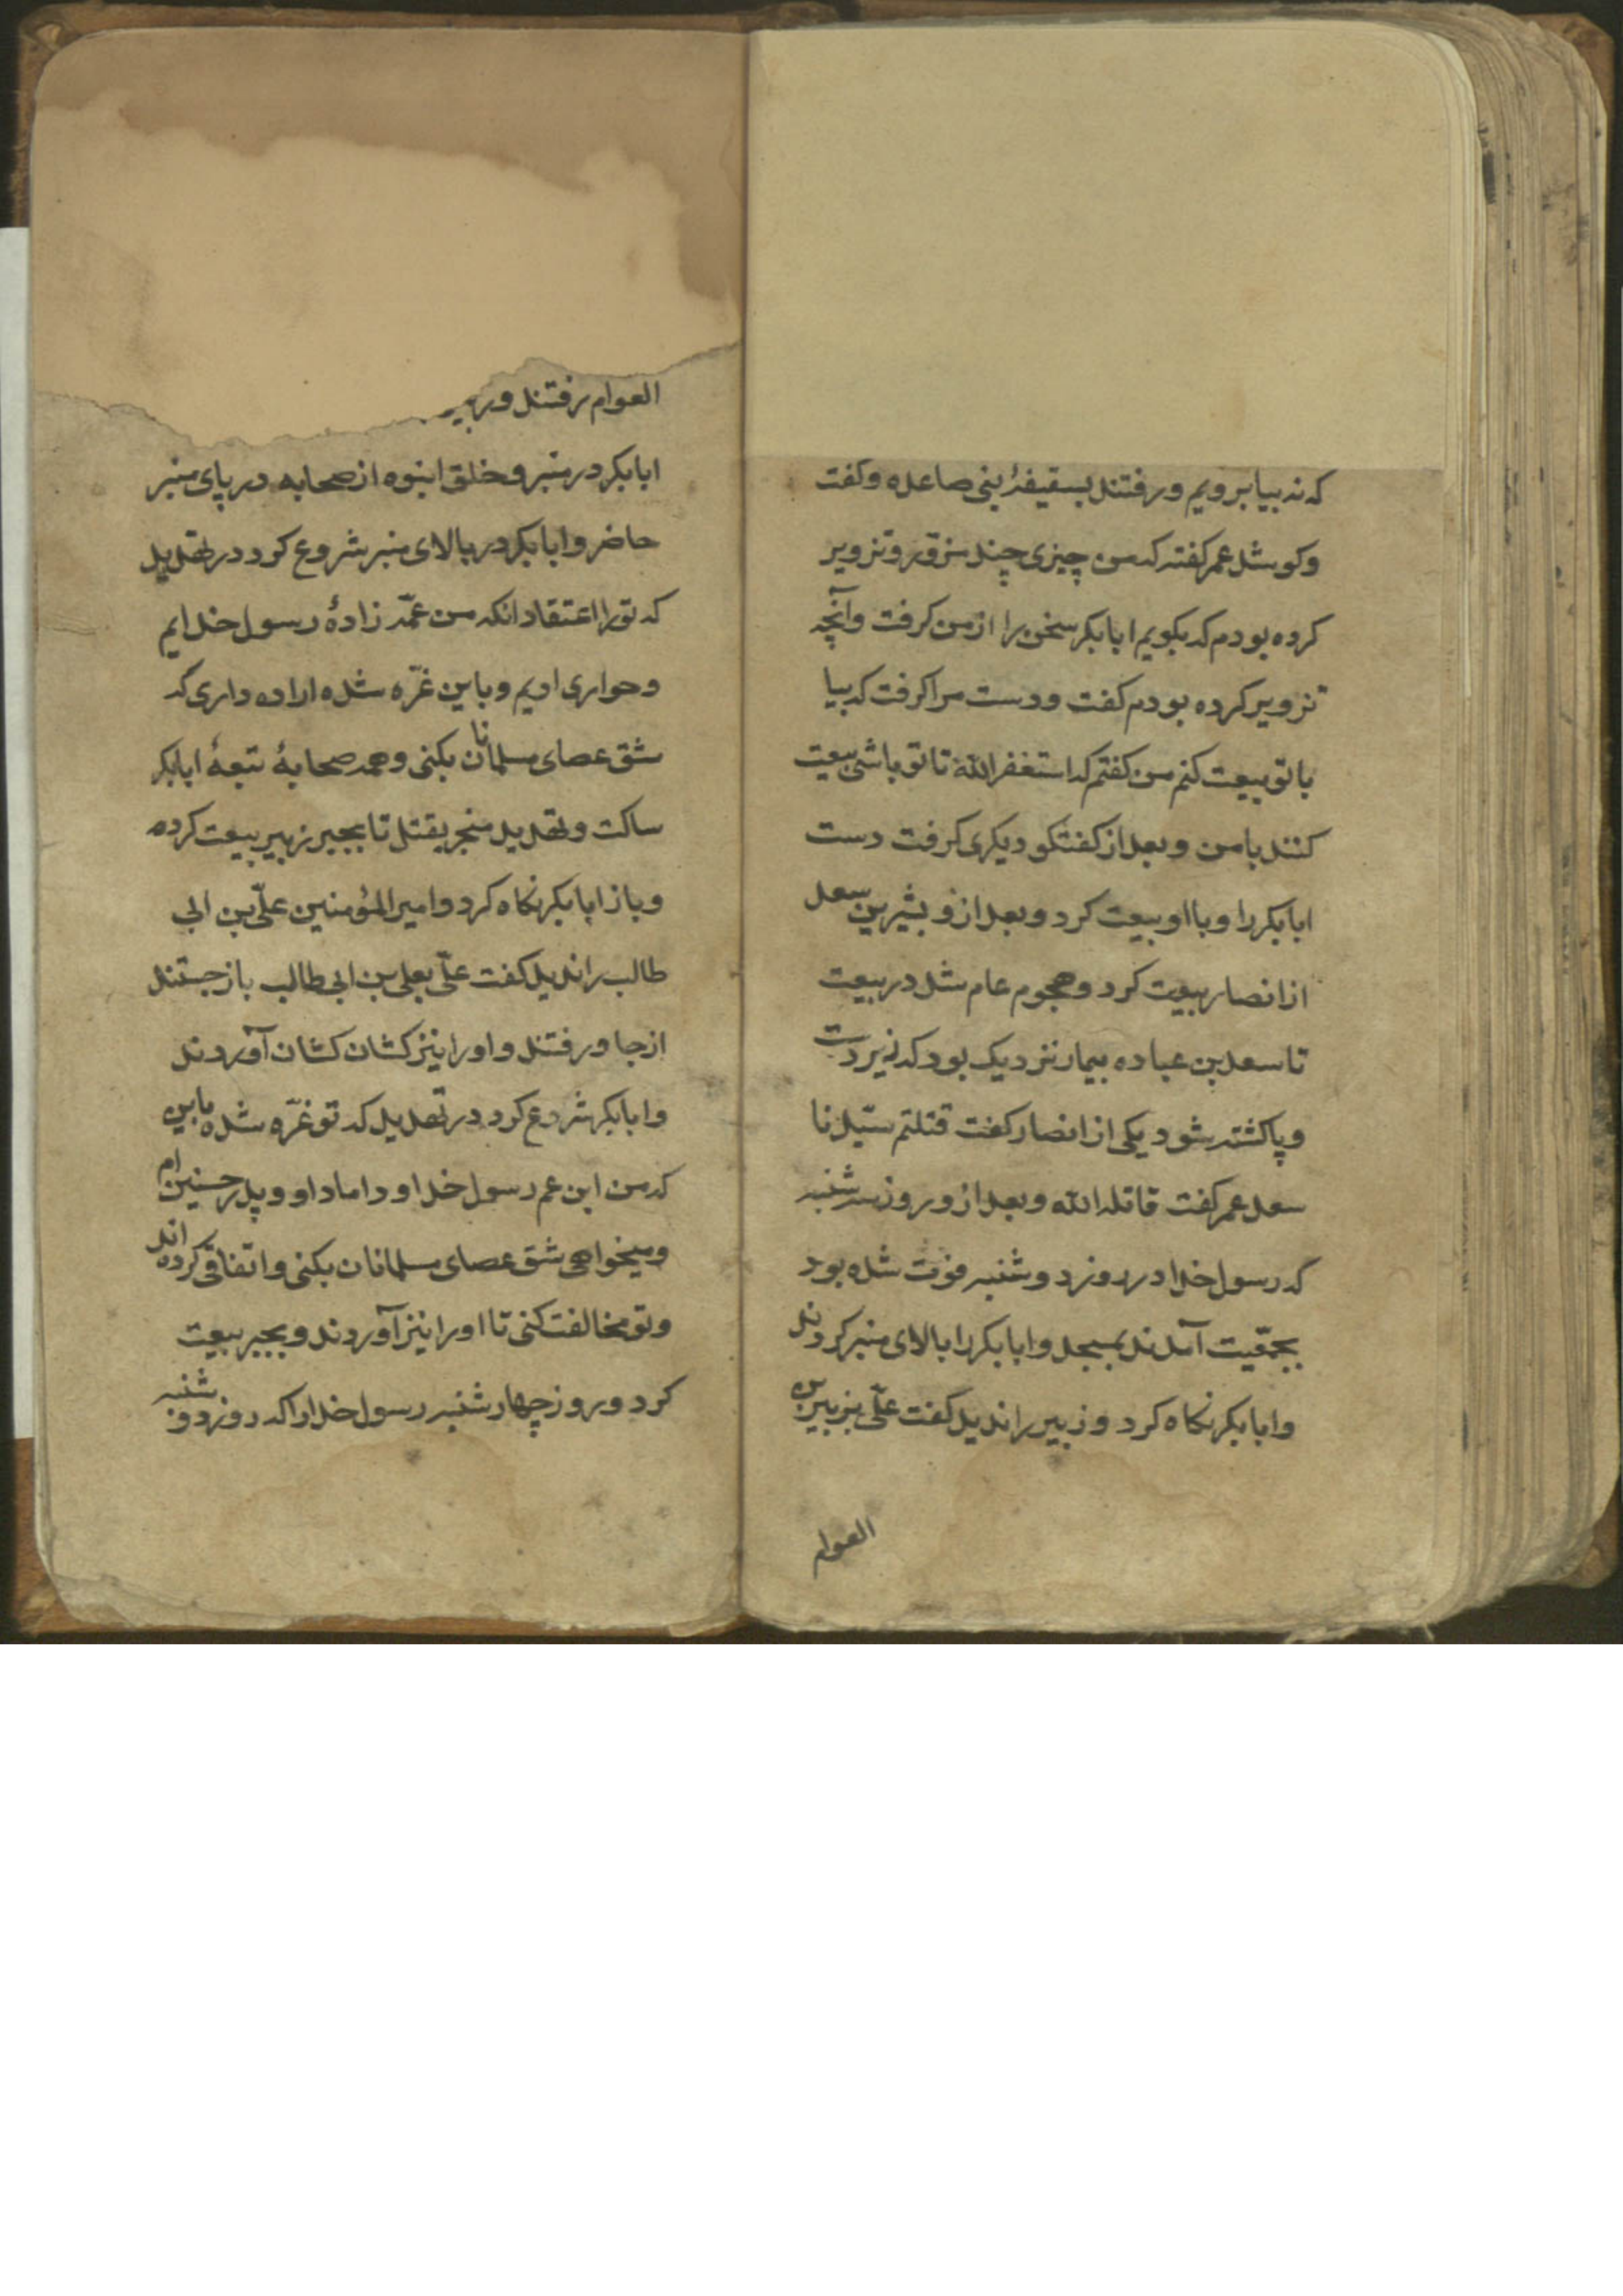 که نه بیا برویم ورفتند بسقیفۀ بنی صاعده وکفت
وکو شد عمر کفته که من چیزی چند مزوّر وتزویر
کرده بودم که بکویم ابابکر سخن را از من کرفت وآنچه
تزویر کرده بودم کفت ودست مرا کرفت که بیا
باتو بیعت کنم من کفتم که استغفر الله تا تو باشی بیعت
کنند بامن وبعد از کفتکو دیکری کرفت دست
ابابکر را وبا او بیعت کرد وبعد ازو بشیر بن سعد
از انصار بیعت کرد وهجوم عام شد در بیعت
تا سعد بن عباده بیمار نزدیک بود که زیر دست
وپا کشته شود یکی از انصار کفت قتلتم سیّدنا
سعد عمر کفت قاتله الله وبعد ازو روز سه شنبه
که رسول خدا در روز دوشنبه فوت شده بود
بجمعّیت آمدند بمسجد وابابکر را بالای منبر کردند
وابابکر نکاه کرد وزبیر را ندید کفت علّی بزبیر بن
العوام
العوام رفتند و
ابابکر در منبر وخلق انبوه از صحابه در پای منبر
حاضر وابابکر در بالای منبر شروع کرد در تهدید
که تو را اعتقاد انکه من عمّه زادۀ رسول خدایم
وحواری اویم وباین غرّه شده اراده داری که
شق عصای مسلمانان بکنی وهمه صحابۀ تبعۀ ابابکر
ساکت وتهدید منجر بقتل تا بجبر زبیر بیعت کرده
وباز ابابکر نکاه کرد وامیر المؤمنین علّی بن ابی
طالب را ندید کفت علّی بعلی بن ابی طالب باز جستند
از جا ورفتند واورا نیز کشان کشان آوردند
وابابکر شروع کرد در تهدید که تو غرّه شده باین
که من ابن عم رسول خدا وداماد او وپدر حسنین ام
ومیخواهی شق عصای مسلمانان بکنی واتفاقی کرده اند
وتو مخالفت کنی تا اورا نیز آوردند وبجبر بیعت
کرد وروز چهارشنبه رسول خدا را که روز دوشنبه